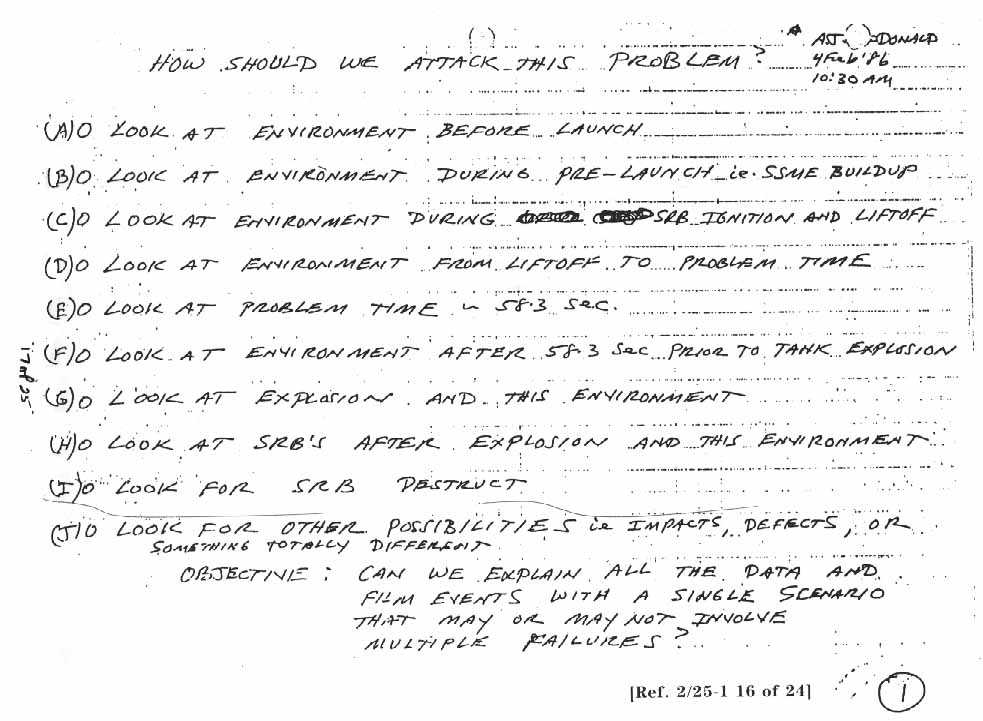 HOW SHOULD WE ATTACK THIS PROBLEM?
4 Feb '86
10:30 AM
(A) O LOOK AT ENVIRONMENT BEFORE LAUNCH
(B) O LOOK AT ENVIRONMENT DURING PRE-LAUNCH ie. SSME BUILDUP
(C) O LOOK AT ENVIRONMENT DURING SRB IGNITION AND LIFTOFF
(D) O LOOK AT ENVIRONMENT FROM LIFTOFF TO PROBLEM TIME
(E) O LOOK AT PROBLEM TIME ~ 58.3 Sec.
(F) O LOOK AT ENVIRONMENT AFTER 58.3 Sec PRIOR TO TANK EXPLOSION
(G) O LOOK AT EXPLOSION AND THIS ENVIRONMENT
(H) O LOOK AT SRB'S AFTER EXPLOSION AND THIS ENVIRONMENT
(I) O LOOK FOR SRB DESTRUCT
(J) O LOOK FOR OTHER POSSIBILITIES ie IMPACTS, DEFECTS, OR
SOMETHING TOTALLY DIFFERENT
OBJECTIVE: CAN WE EXPLAIN ALL THE DATA AND
FILM EVENTS WITH A SINGLE SCENARIO
THAT MAY OR MAY NOT INVOLVE
MULTIPLE FAILURES?
[Ref. 2/25-1 16 of 24]
1